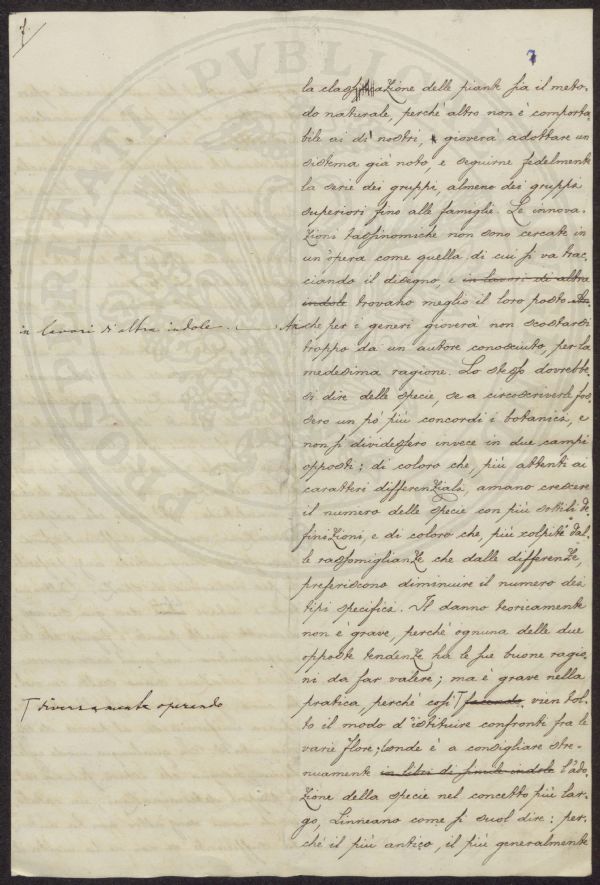 7.
7
la classificazione delle piante sia il meto-
do naturale, perchè altro non è comporta-
bile ai dì nostri, gioverà adottare un
sistema già noto, e seguirne fedelmente
la serie dei gruppi, almeno dei gruppi
superiori fino alle famiglie. Le innova-
zioni tassinomiche non sono cercate in
un'opera come quella di cui si va trac-
ciando il disegno, e in lavori di altra
indole trovano meglio il loro posto An-
in lavori di altra indole. Anche per i generi gioverà non scostarsi
troppo da un autore conosciuto, per la
medesima ragione. Lo stesso dovrebbe-
si dire delle specie, se a circoscriverle fos-
sero un pò più concordi i botanici, e
non si dividessero invece in due campi
opposti: di coloro che, più attenti ai
caratteri differenziali, amano crescere
il numero delle specie con più sottili de-
finizioni, e di coloro che, più colpiti dal-
le rassomiglianze che dalle differenze,
preferiscono diminuire il numero dei
tipi specifici. Il danno teoricamente
non è grave, perchè ognuna delle due
opposte tendenze ha le sue buone ragio-
ni da far valere; ma è grave nella
pratica, perchè così T facendo, vien tol-
T diversamente operando
to il modo d'istituire confronti fra le
varie flore; onde è a consigliare stre-
nuamente in libri di simile indole l'ado-
zione della specie nel concetto più lar-
go, Linneano come si suol dire: per-
chè il più antico, il più generalmente